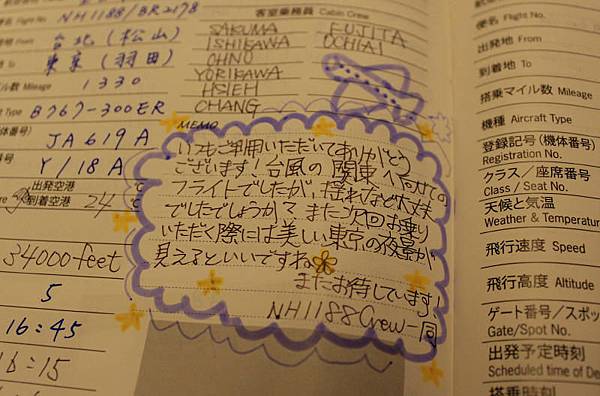 便名 Flight No. NH1188/BR2178
From 台北(松山)
To 東京(羽田)
マイル数 Mileage 1330
Type B767-300ER
JA619A
Y/18A
出発空港 ℃
到着空港 24 ℃
34000feet
5
16:45
16:15
客室乗務員 Cabin Crew
SAKUMA
ISHIKAWA
OHNO
YORIKAWA
HSIEH
CHANG
FUJITA
OCHIAI
MEMO
いつもご利用いただいてありがとう
ございます!台風の関東へ向けての
フライトでしたが、揺れなど大丈夫
でしたでしょうか?また次回お乗り
いただく際には美しい東京の夜景が
見えるといいですね
またお待しています!
NH1188 Crew一同
便名 Flight No.
出発地 From
到着地 To
搭乗マイル数 Mileage
機種 Aircraft Type
登録記号(機体番号)
Registration No.
クラス/座席番号
Class / Seat No.
天候と気温
Weather & Temperatur
飛行速度 Speed
飛行高度 Altitude
ゲート番号/スポッ
Gate/Spot No.
出発予定時刻
Scheduled time of De
搭乗時刻